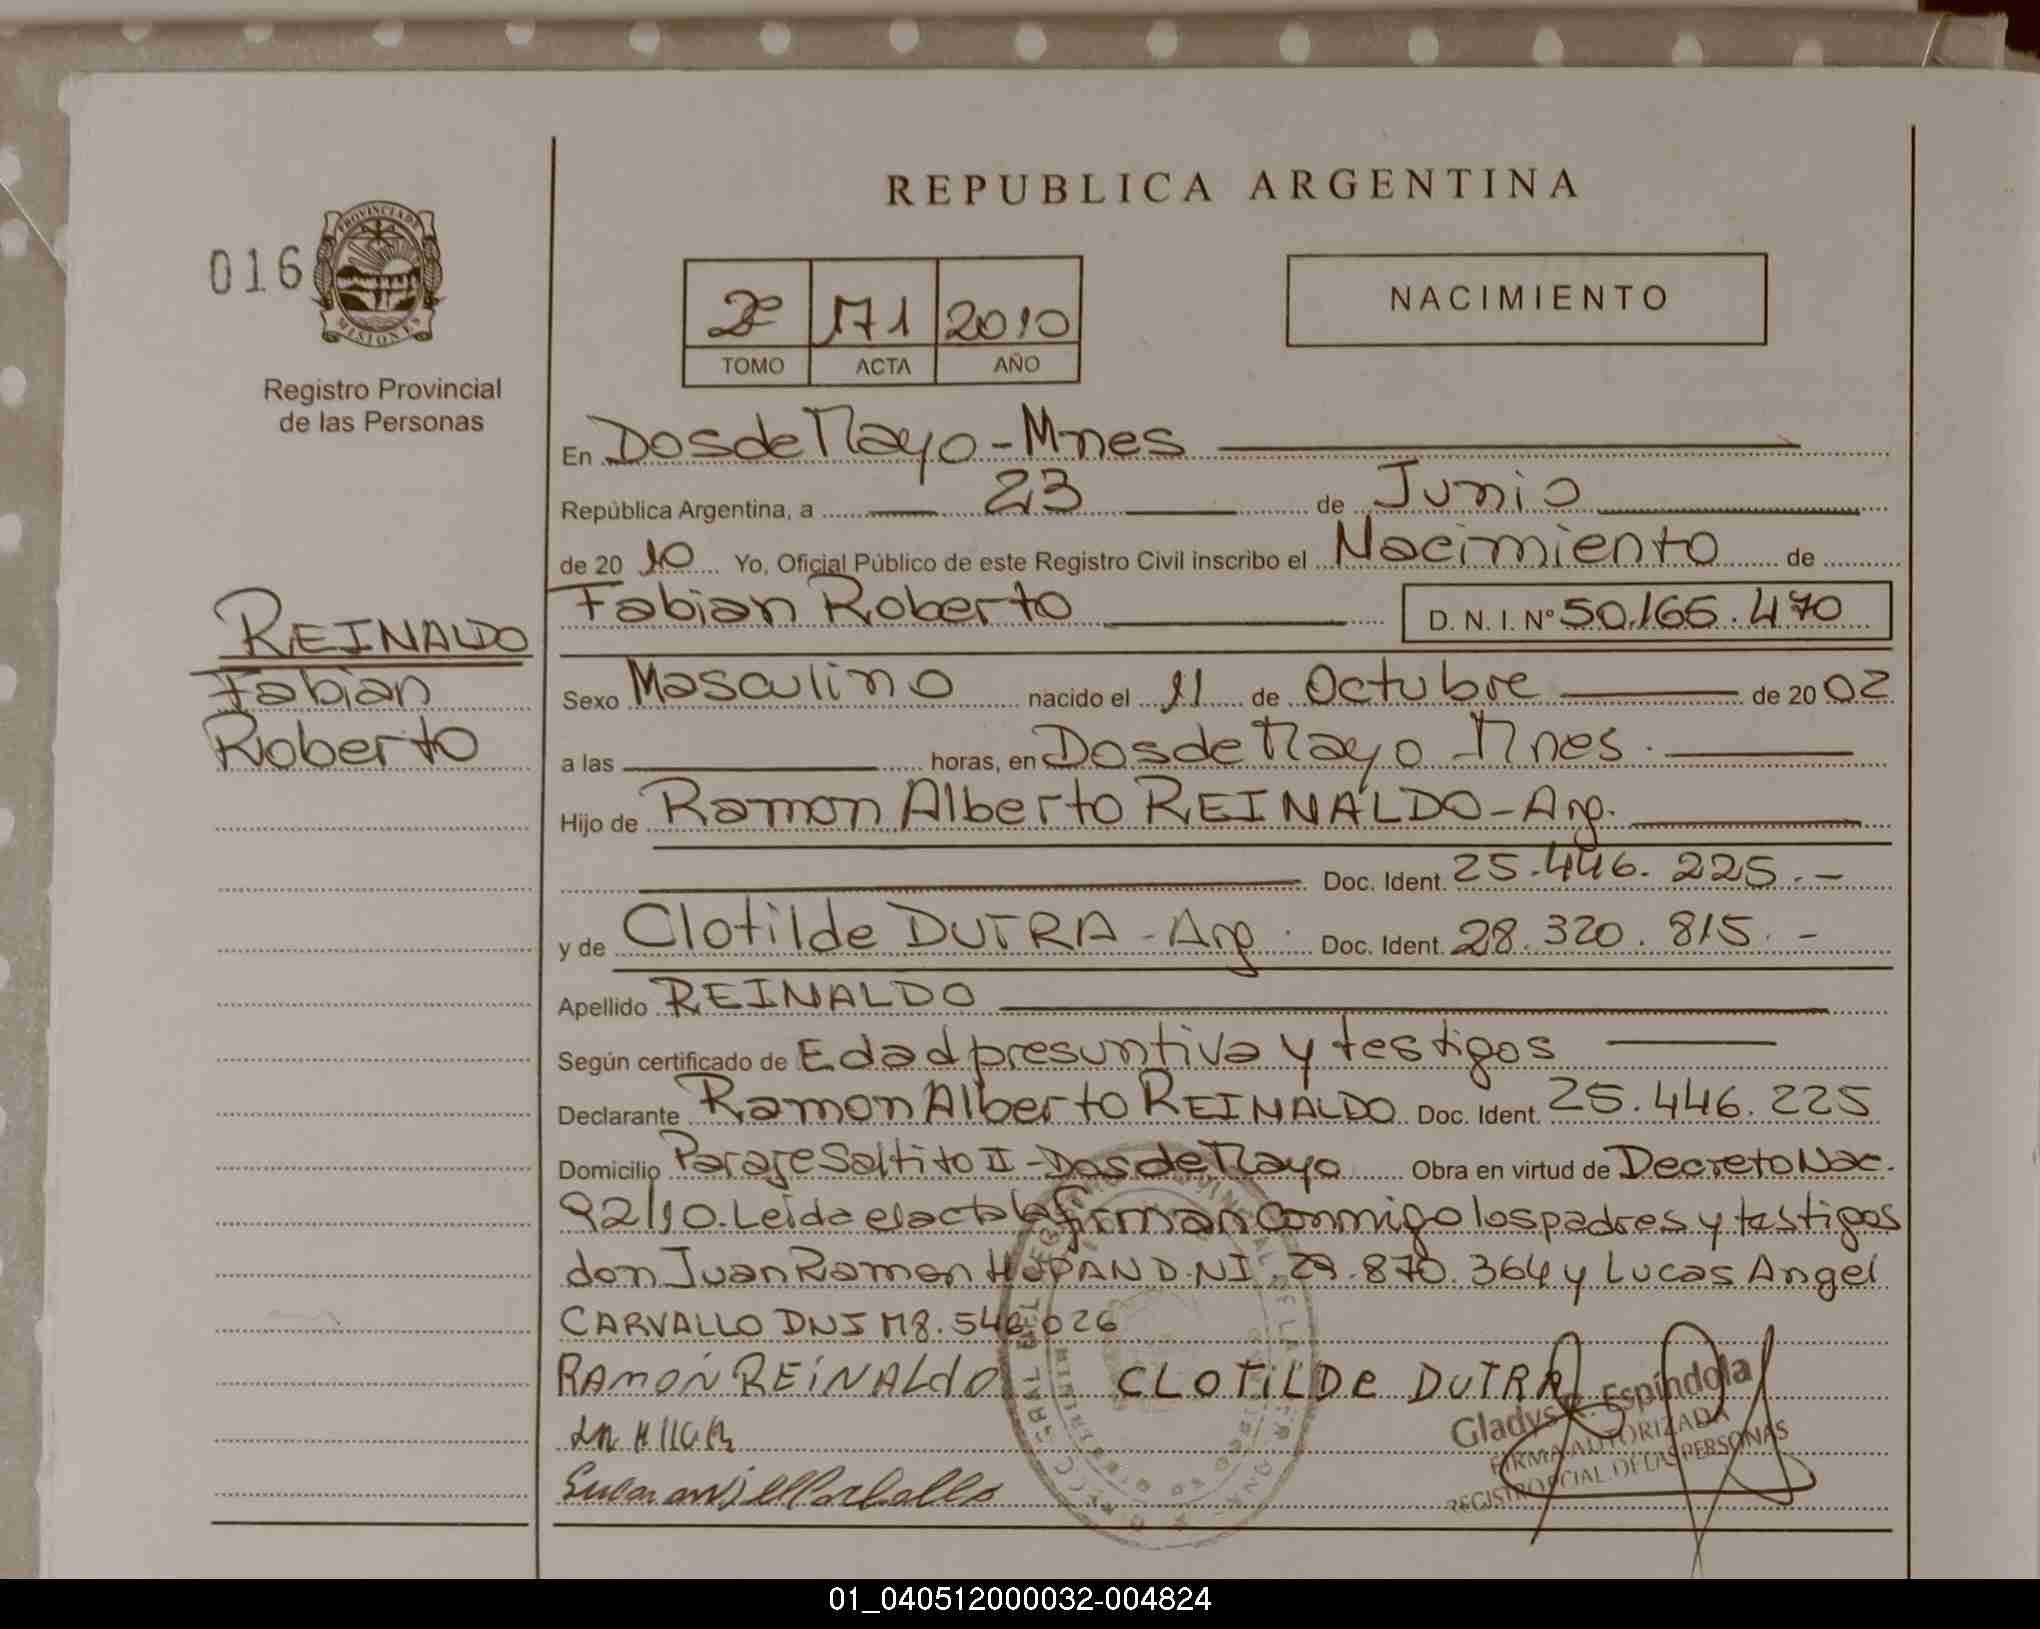 REPUBLICA ARGENTINA
016
PROVINCIA DE MISIONES
Registro Provincial
de las Personas
2º 171 2010
TOMO ACTA AÑO
NACIMIENTO
En Dos de Mayo - Mnes
República Argentina, a 23 de Junio
de 2010 Yo, Oficial Público de este Registro Civil inscribo el Nacimiento de
Fabian Roberto D. N. I. Nº 50.165.470
REINALDO
Fabian
Roberto
Sexo Masculino nacido el 11 de Octubre de 2002
a las horas, en Dos de Mayo Mnes.
Hijo de Ramon Alberto REINALDO - Arg.
Doc. Ident. 25.446.225.-
y de Clotilde DUTRA - Arg. Doc. Ident. 28.320.815.-
Apellido REINALDO
Según certificado de Edad presuntiva y testigos
Declarante Ramon Alberto REINALDO Doc. Ident. 25.446.225
Domicilio Paraje Saltito II - Dos de Mayo Obra en virtud de Decreto Nac.
92/10. Leida el acta la firman conmigo los padres y testigos
don Juan Ramon D.N.I. 29.870.364 y Lucas Angel
CARVALLO DNI M8.546.026
RAMÓN REINALDO CLOTILDE DUTRA
Gladys Espíndola
FIRMA AUTORIZADA
REGISTRO PCIAL DE LAS PERSONAS
01_040512000032-004824